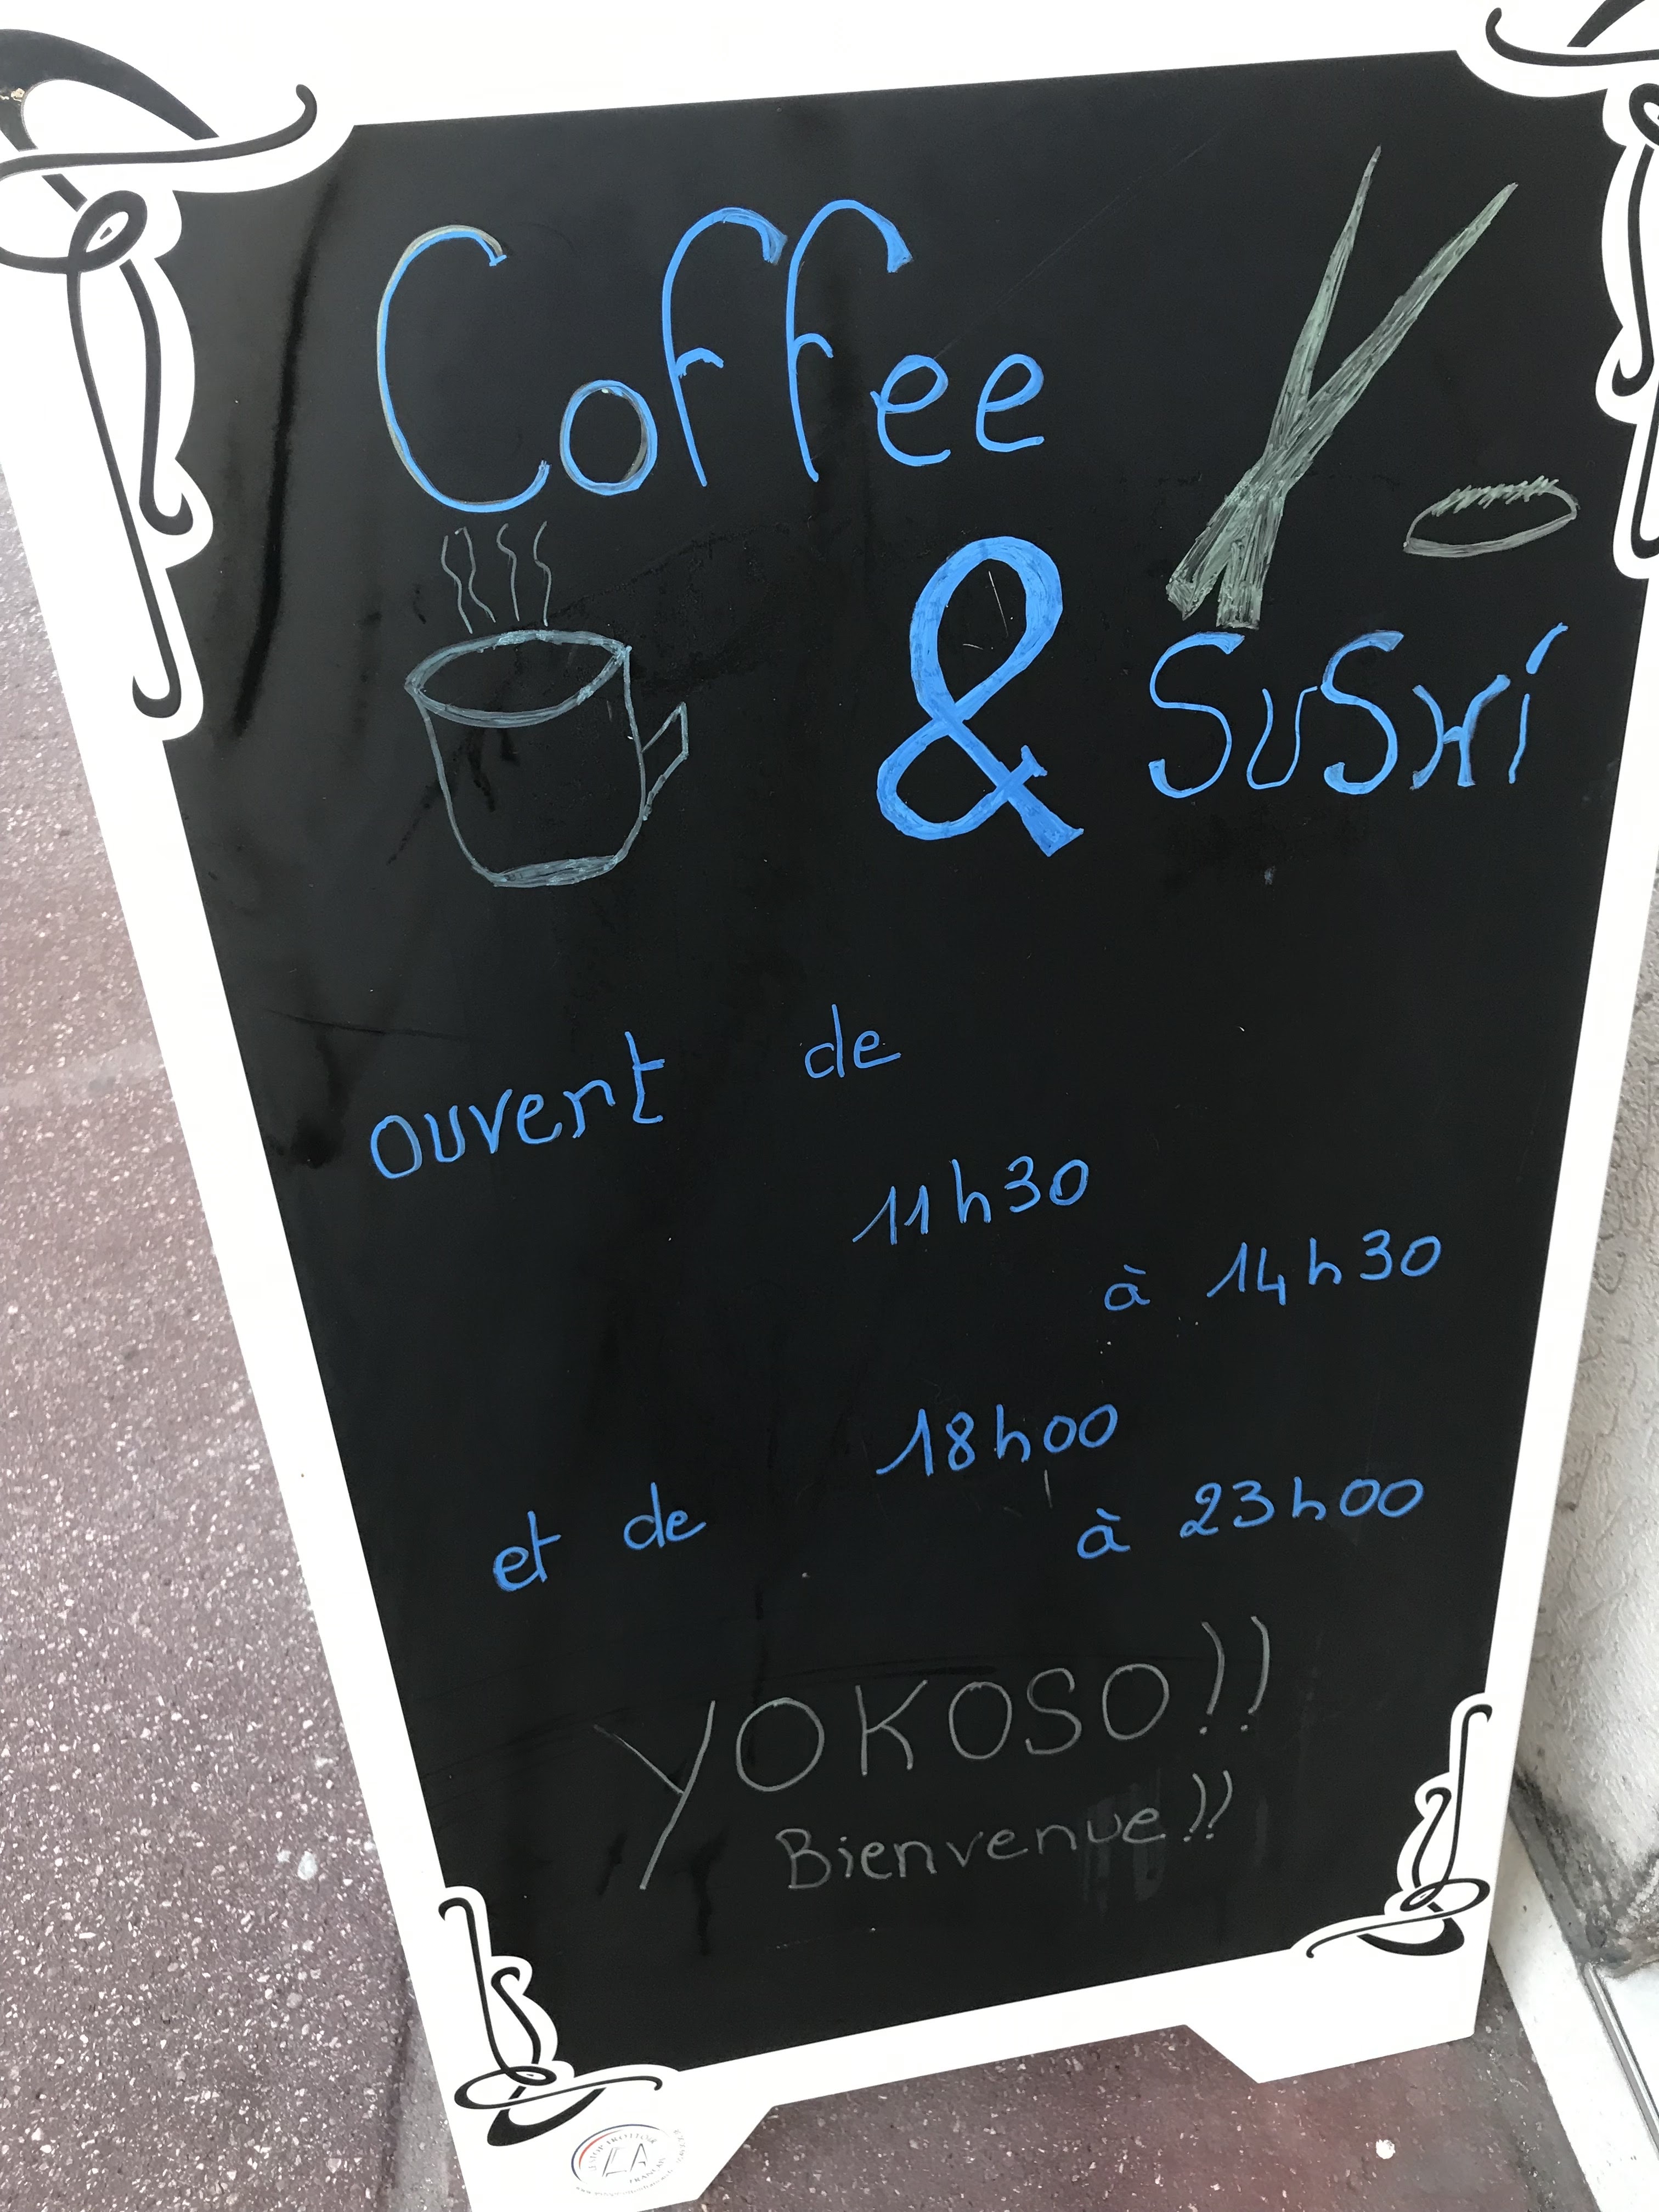 Coffee
& SuSHi
ouvert de
11h30
à 14h30
et de 18h00
à 23h00
YOKOSO!!
Bienvenue!!